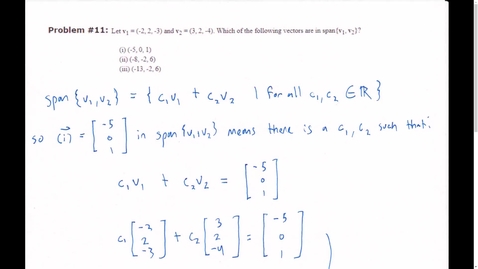 Problem #11: Let v₁ = (-2, 2, -3) and v₂ = (3, 2, -4). Which of the following vectors are in span{v₁, v₂}?
(i) (-5, 0, 1)
(ii) (-8, -2, 6)
(iii) (-13, -2, 6)
span {v₁, v₂} = { c₁v₁ + c₂v₂ | for all c₁, c₂ ∈ ℝ }
so (i) = [-5 0 1] in span {v₁, v₂} means there is a c₁, c₂ such that:
c₁v₁ + c₂v₂ = [-5 0 1]
c₁ [-2 2 -3] + c₂ [3 2 -4] = [-5 0 1]